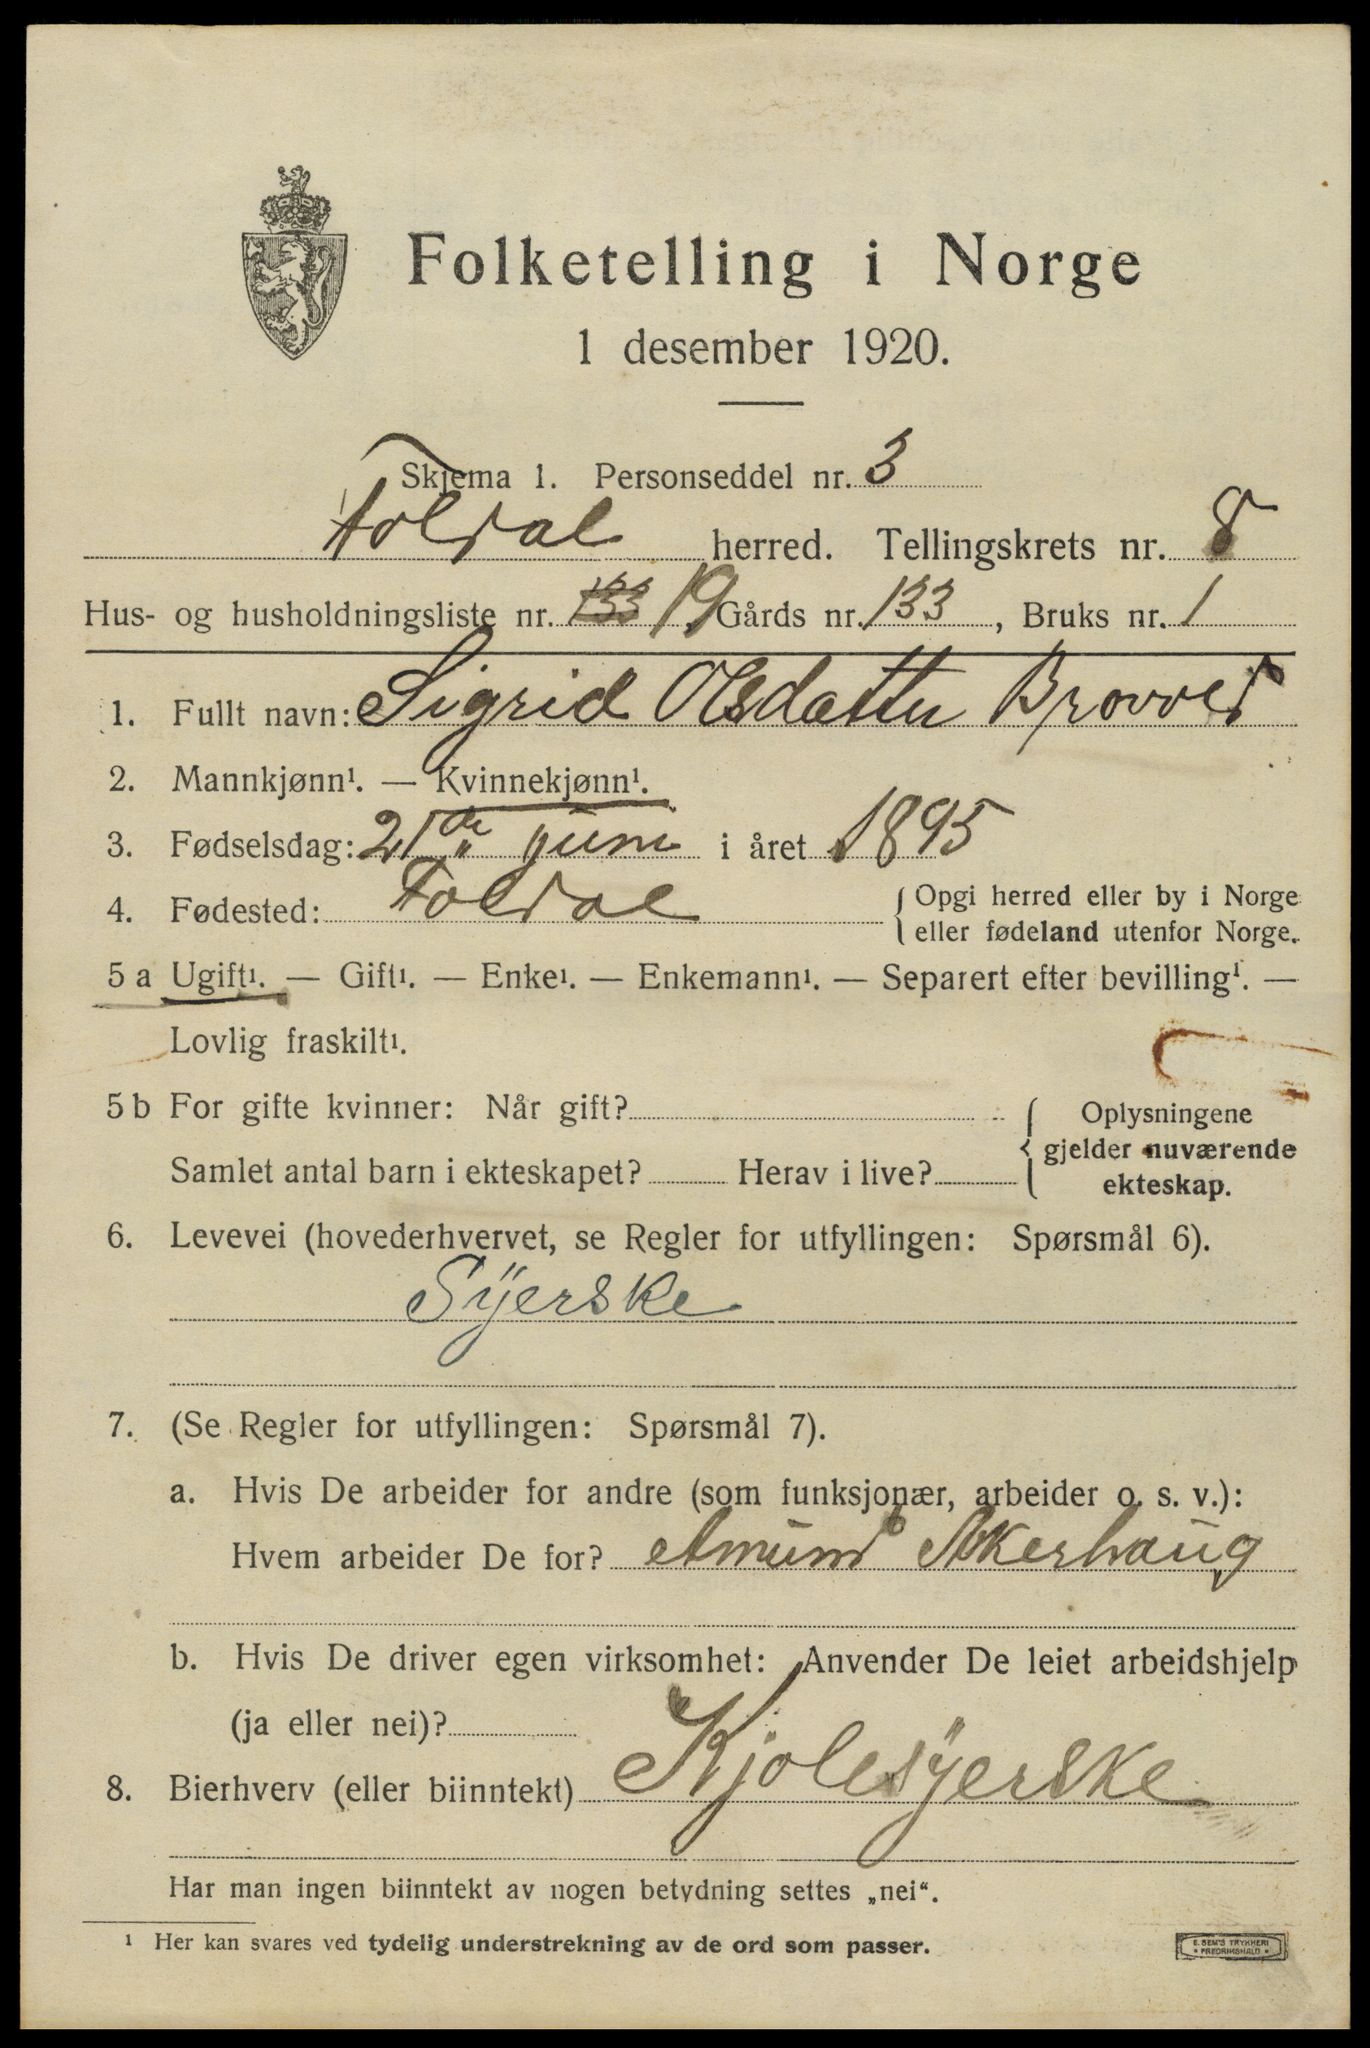 Folketelling i Norge
1 desember 1920.
Skjema 1. Personseddel nr. 3
Foldal herred. Tellingskrets nr. 8
Hus- og husholdningsliste nr. 133 19, Gårds nr. 133, Bruks nr. 1
1. Fullt navn: Sigrid Olsdatter Brovold
2. Mannkjønn¹. — Kvinnekjønn¹.
3. Fødselsdag: 21de juni i året 1895
4. Fødested: Foldal { Opgi herred eller by i Norge
eller fødeland utenfor Norge.
5 a Ugift¹. — Gift¹. — Enke¹. — Enkemann¹. — Separert efter bevilling¹. —
Lovlig fraskilt¹.
5 b For gifte kvinner: Når gift?
Samlet antal barn i ekteskapet? Herav i live?
{ Oplysningene
gjelder nuværende
ekteskap.
6. Levevei (hovederhvervet, se Regler for utfyllingen: Spørsmål 6).
Syerske
7. (Se Regler for utfyllingen: Spørsmål 7).
a. Hvis De arbeider for andre (som funksjonær, arbeider o. s. v.):
Hvem arbeider De for? Amund Akerhaug
b. Hvis De driver egen virksomhet: Anvender De leiet arbeidshjelp
(ja eller nei)?
8. Bierhverv (eller biinntekt) Kjolesyerske
Har man ingen biinntekt av nogen betydning settes „nei“.
¹ Her kan svares ved tydelig understrekning av de ord som passer.
E. SEM'S TRYKKERI
FREDRIKSHALD